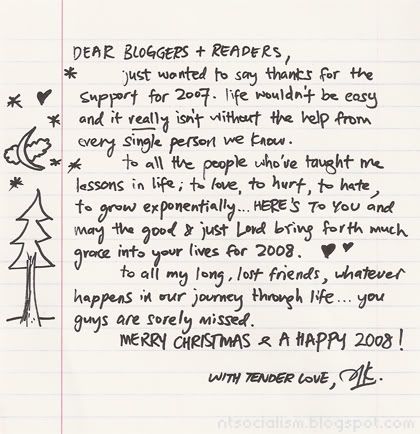 DEAR BLOGGERS + READERS,
just wanted to say thanks for the
support for 2007. life wouldn't be easy
and it really isn't without the help from
every single person we know.
to all the people who've taught me
lessons in life; to love, to hurt, to hate,
to grow exponentially... HERE'S TO YOU and
may the good & just Lord bring forth much
grace into your lives for 2008.
to all my long, lost friends, whatever
happens in our journey through life... you
guys are sorely missed.
MERRY CHRISTMAS & A HAPPY 2008!
WITH TENDER LOVE,
ntsocialism.blogspot.com